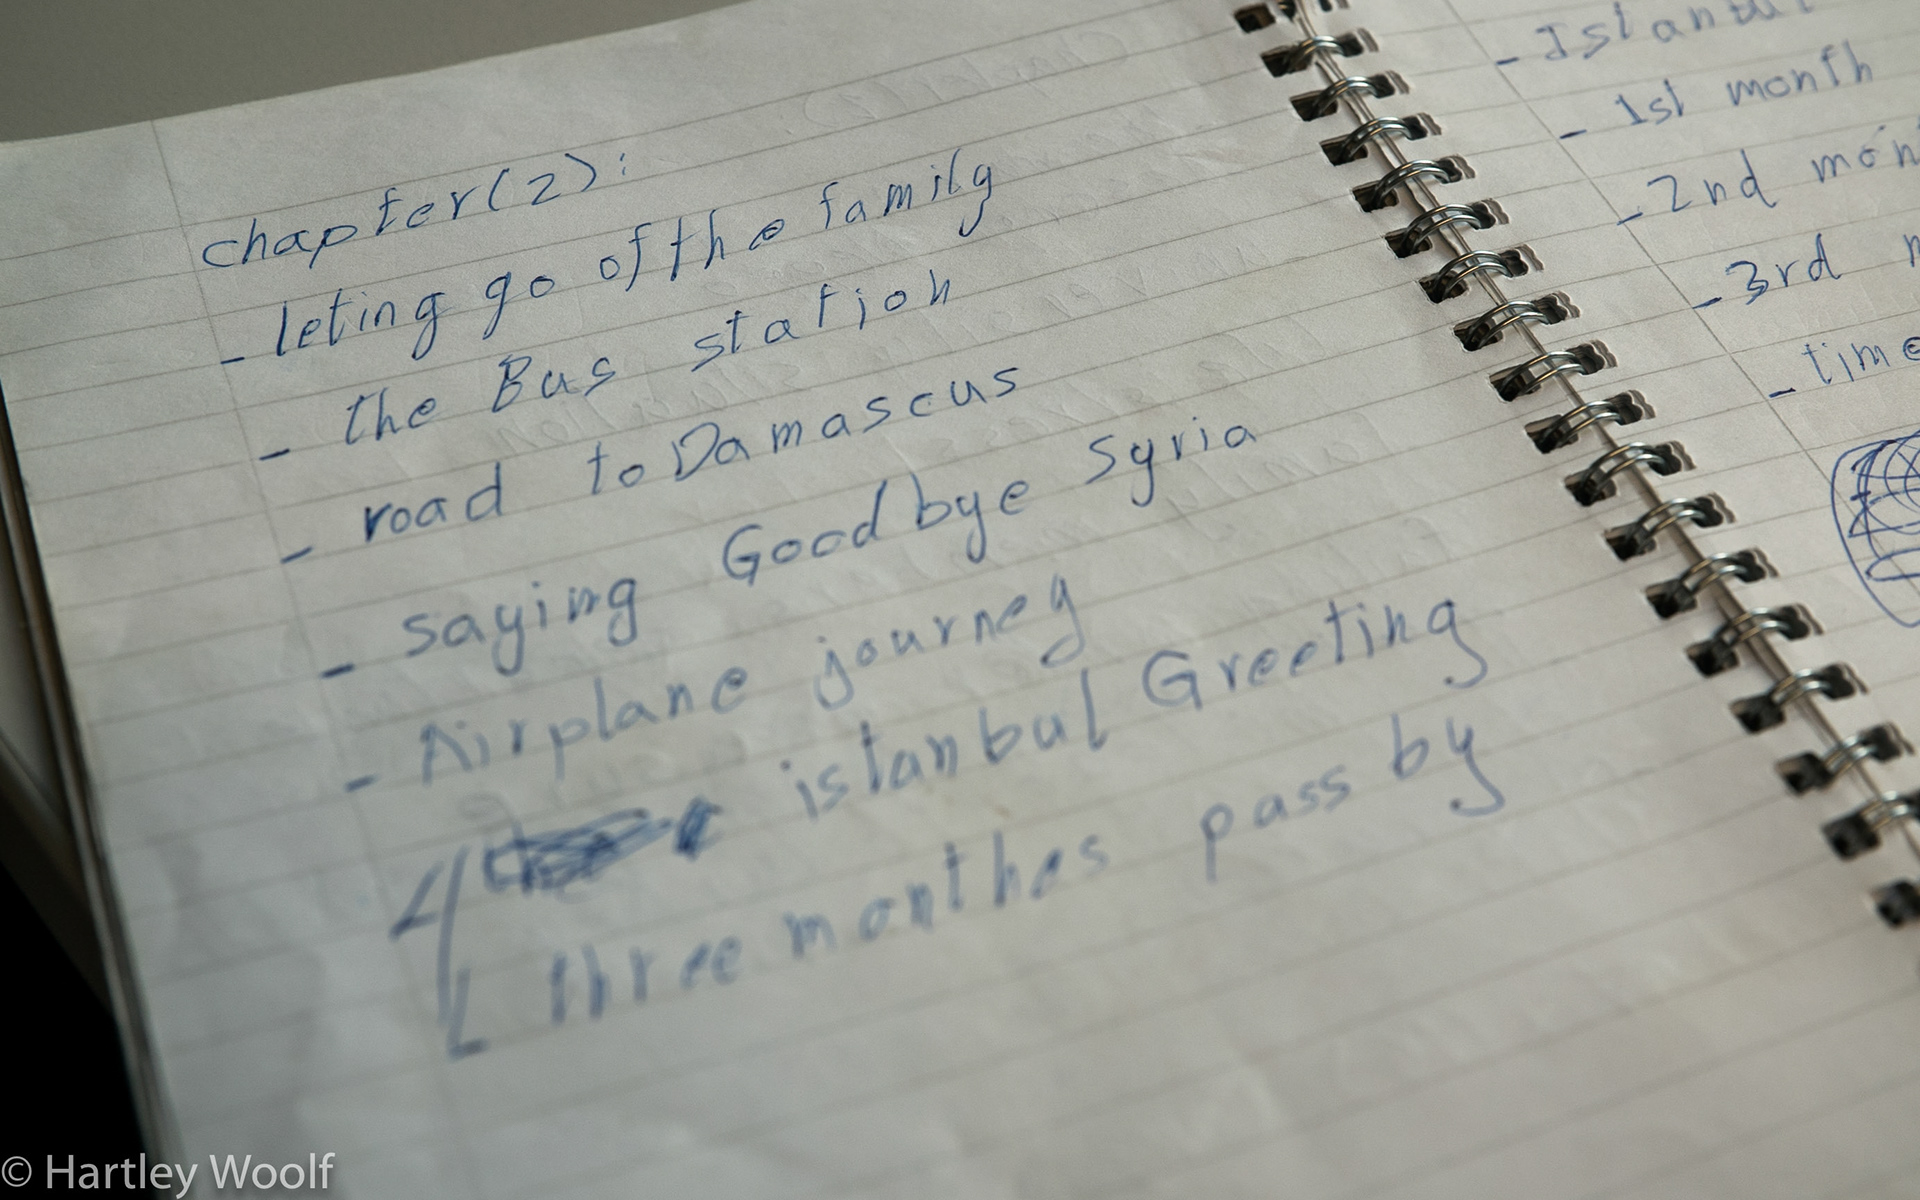 chapter(2):
- leting go of the family
- the Bus station
- road to Damascus
- saying Good bye Syria
- Airplane journey
istanbul Greeting
three monthes pass by
- Istanbul
- 1st month
- 2nd mon
- 3rd m
- time
© Hartley Woolf